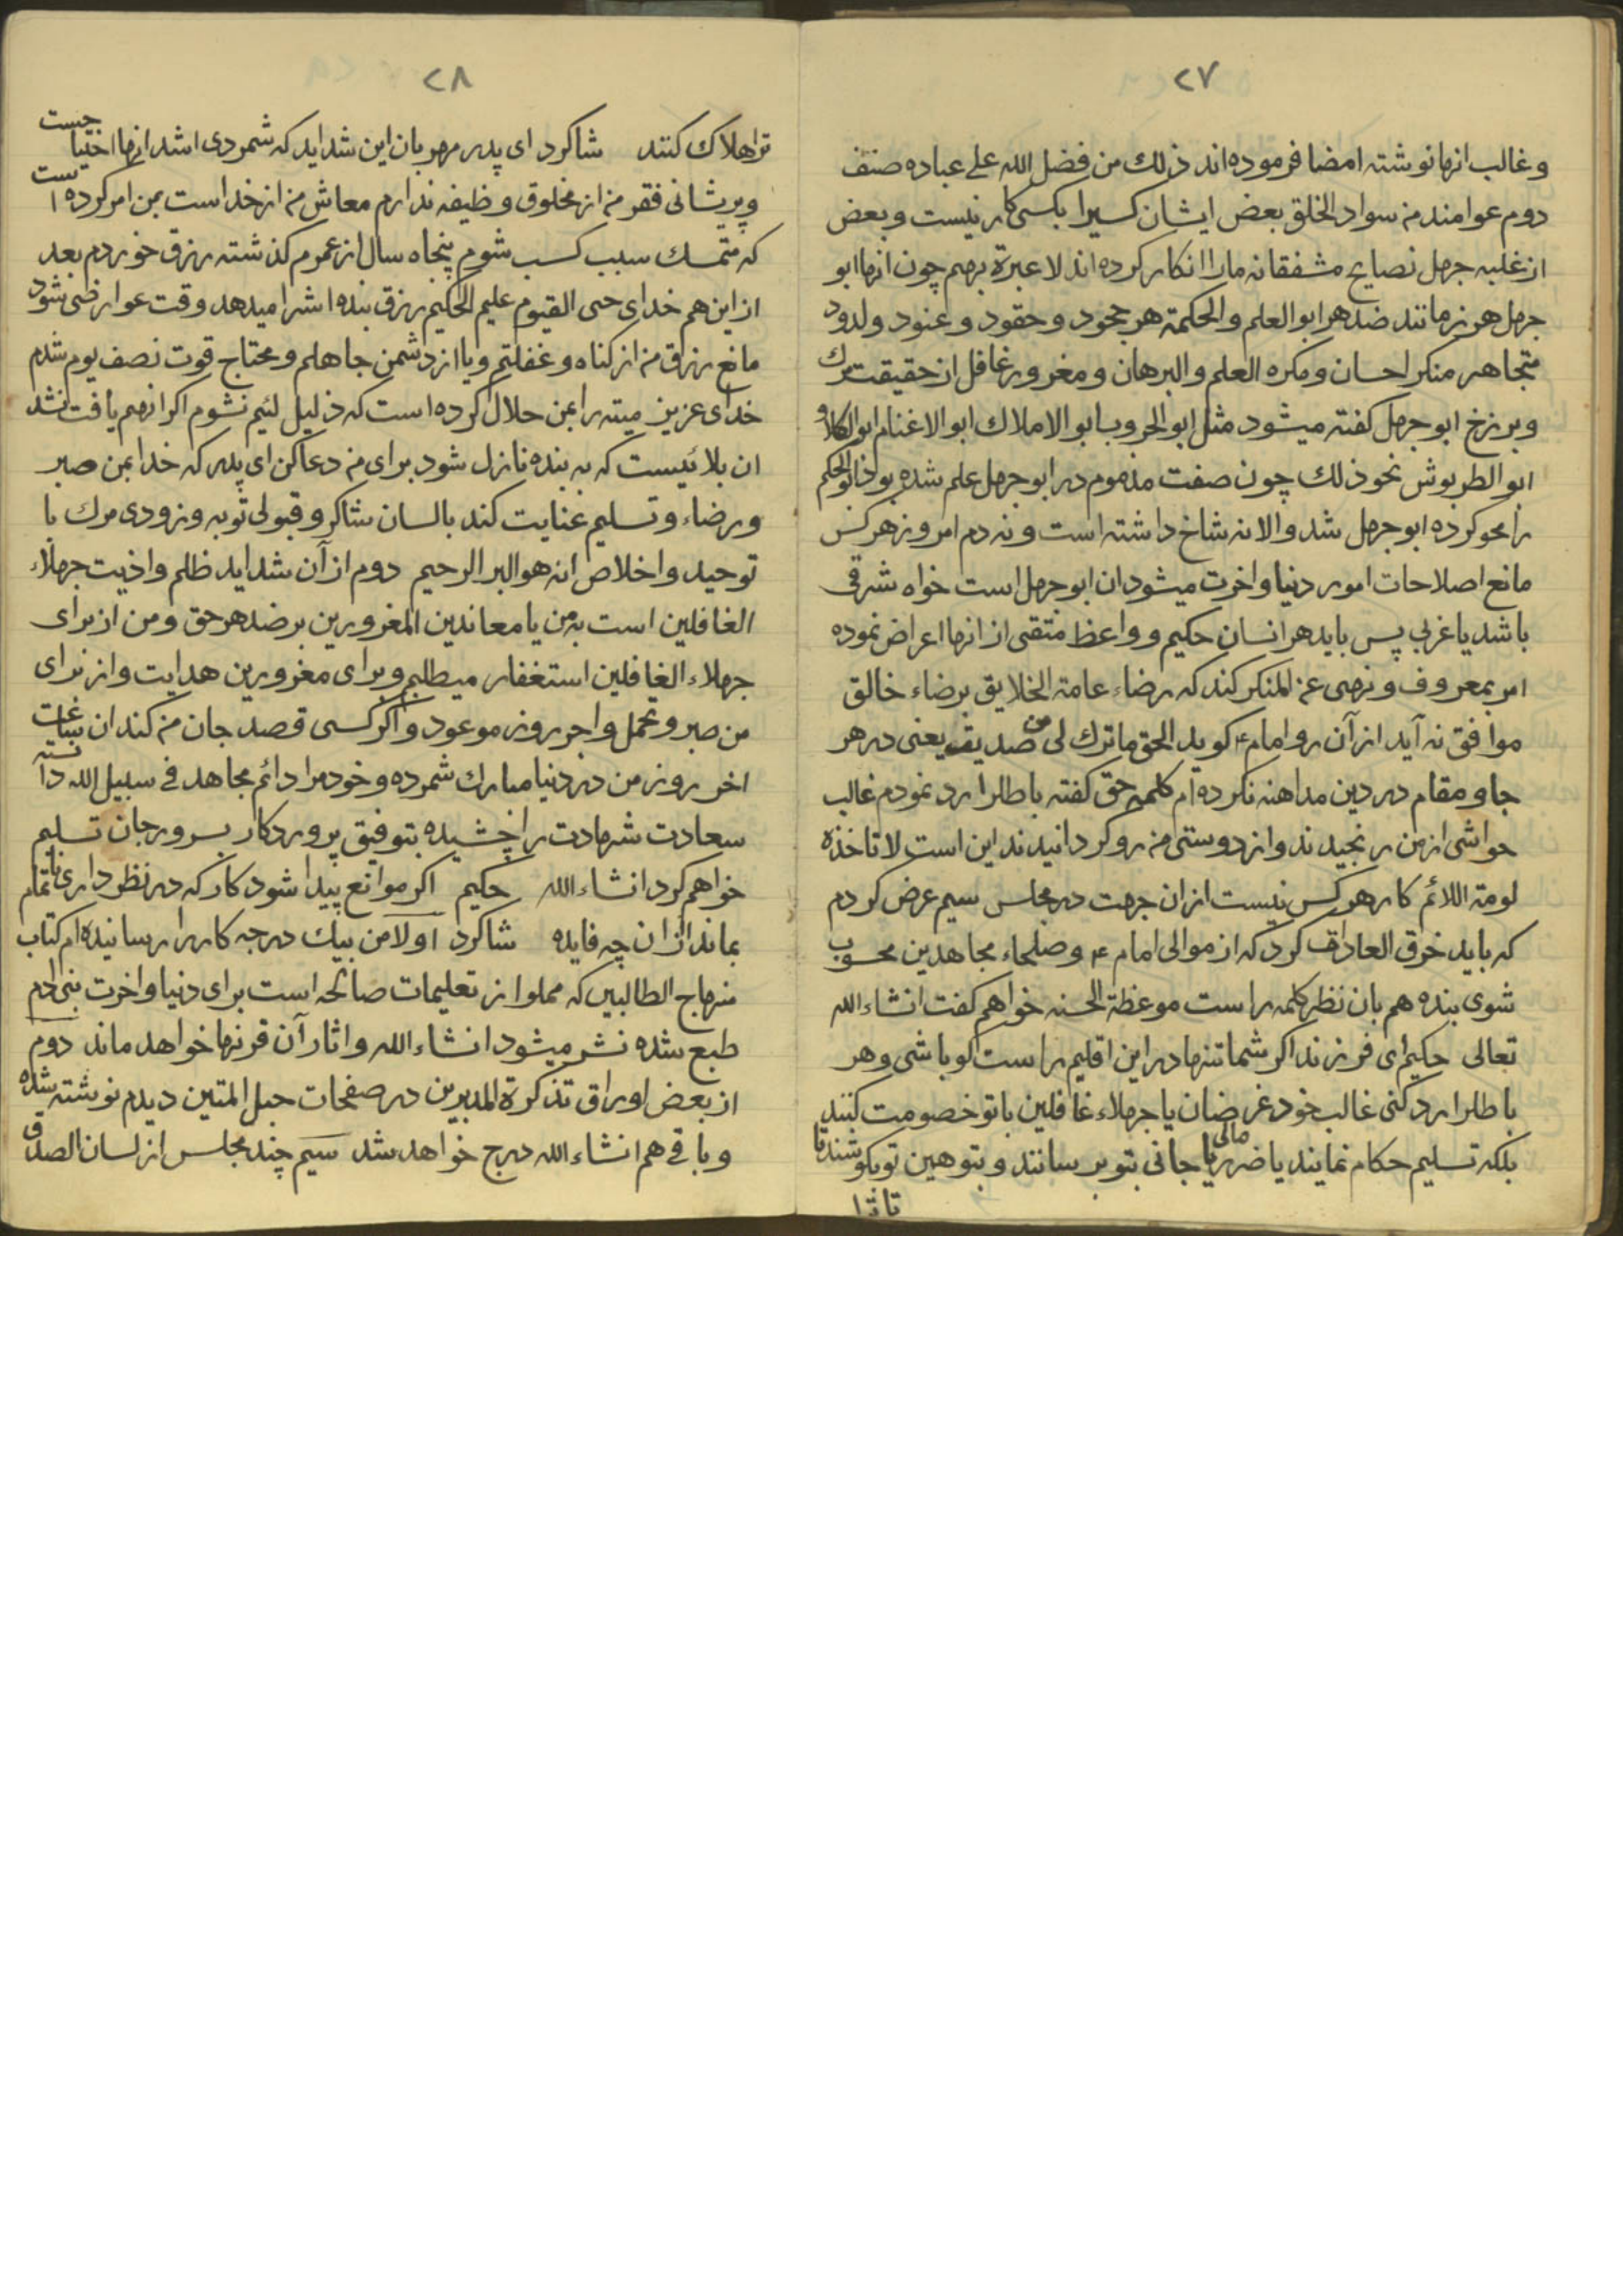 ٢٧
وغالب انها نوشته امضا فرموده اند ذلك من فضل الله على عباده صنف
دوم عوامند من سواد الخلق بعض ايشان كسيرا بكسى كار نيست وبعض
از غلبه جهل نصايح مشفقانه مارا انكار كرده اند لا عبرة بهم چون انها ابو
جهل هر زمانند ضد هر ابو العلم والحكمة هر جحود وحقود وعنود ولدود
متجاهر منكر احسان ومكره العلم والبرهان ومغرور غافل از حقيقت مرك
وبرزخ ابو جهل كفته ميشود مثل ابو الحروب ابو الاملاك ابو الاغنام ابو الكلاو
ابو الطربوش نحو ذلك چون صفت مذموم در ابو جهل علم شده بود ابو الحكم
را محو كرده ابو جهل شد والا نه شاخ داشته است ونه دم امروز هر كس
مانع اصلاحات امور دنيا واخرت ميشود ان ابو جهل است خواه شرقى
باشد يا غربى پس بايد هر انسان حكيم وواعظ متقى از انها اعراض نموده
امر بمعروف ونهى عن المنكر كند كه رضاء عامة الخلايق برضاء خالق
موافق نه آيد از آن رو امام ع كويد الحق ما ترك لى من صديق يعنى در هر
جا ومقام در دين مداهنه نكرده ام كلمه حق كفته باطلرا رد نمودم غالب
حواشى از من رنجيدند واز دوستى من رو كردانيدند اين است لا تاخذه
لومة اللائم كار هر كس نيست از ان جهت در مجلس سيم عرض كردم
كه بايد خرق العادات كرد كه از موالى امام ع وصلحاء مجاهدين محسوب
شوى بنده هم بان نظر كلمه راست موعظة الحسنه خواهم كفت انشاء الله
تعالى حكيم اى فرزند اكر شما تنها در اين اقليم راست كو باشى وهر
باطلرا رد كنى غالب خود غرضان يا جهلاء غافلين با تو خصومت كنند
بلكه تسليم حكام نمايند يا ضرر مالى يا جانى بتو برسانند وبتوهين تو بكوشند تا
تا ترا
٢٨
ترا هلاك كنند شاكرد اى پدر مهربان اين شدايد كه شمردى اشد انها احتياجيست
وپريشانى فقر من از مخلوق وظيفه ندارم معاش من از خداست بمن امر كرده است
كه متمسك سبب كسب شوم پنجاه سال از عمرم كذشته رزق خوردم بعد
از اين هم خداى حى القيوم عليم الحكيم رزق بنده اشرا ميدهد وقت عوارضى شود
مانع رزق من از كناه وغفلتم ويا از دشمن جاهلم ومحتاج قوت نصف يوم شدم
خداى عزيز ميته را بمن حلال كرده است كه ذليل لئيم نشوم اكر انهم يافت نشد
ان بلائيست كه به بنده نازل شود براى من دعا كن اى پدر كه خدا بمن صبر
ورضاء وتسليم عنايت كند بالسان شاكر وقبولى توبه وزودى مرك با
توحيد واخلاص انه هو البر الرحيم دوم از آن شدايد ظلم واذيت جهلاء
الغافلين است به من يا معاندين المغرورين بر ضد هر حق ومن از براى
جهلاء الغافلين استغفار ميطلبم وبراى مغرورين هدايت واز براى
من صبر وتحمل واجر روز موعود واكر كسى قصد جان من كند ان ساعات
اخر روز من در دنيا مبارك شمرده وخود مرا دائم مجاهد فى سبيل الله دانسته
سعادت شهادت را چشيده بتوفيق پروردكار بسرور جان تسليم
خواهم كرد انشاء الله حكيم اكر موانع پيدا شود كار كه در نظر دارى ناتمام
بماند از ان چه فايده شاكرد اولا من بيك درجه كار را رسانيده ام كتاب
منهاج الطالبين كه مملو از تعليمات صالحه است براى دنيا واخرت بنى ادم
طبع شده نشر ميشود انشاء الله واثار آن قرنها خواهد ماند دوم
از بعض اوراق تذكرة المدبرين در صفحات حبل المتين ديدم نوشته شده
وباقى هم انشاء الله درج خواهد شد سيم چند مجلس از لسان الصدق